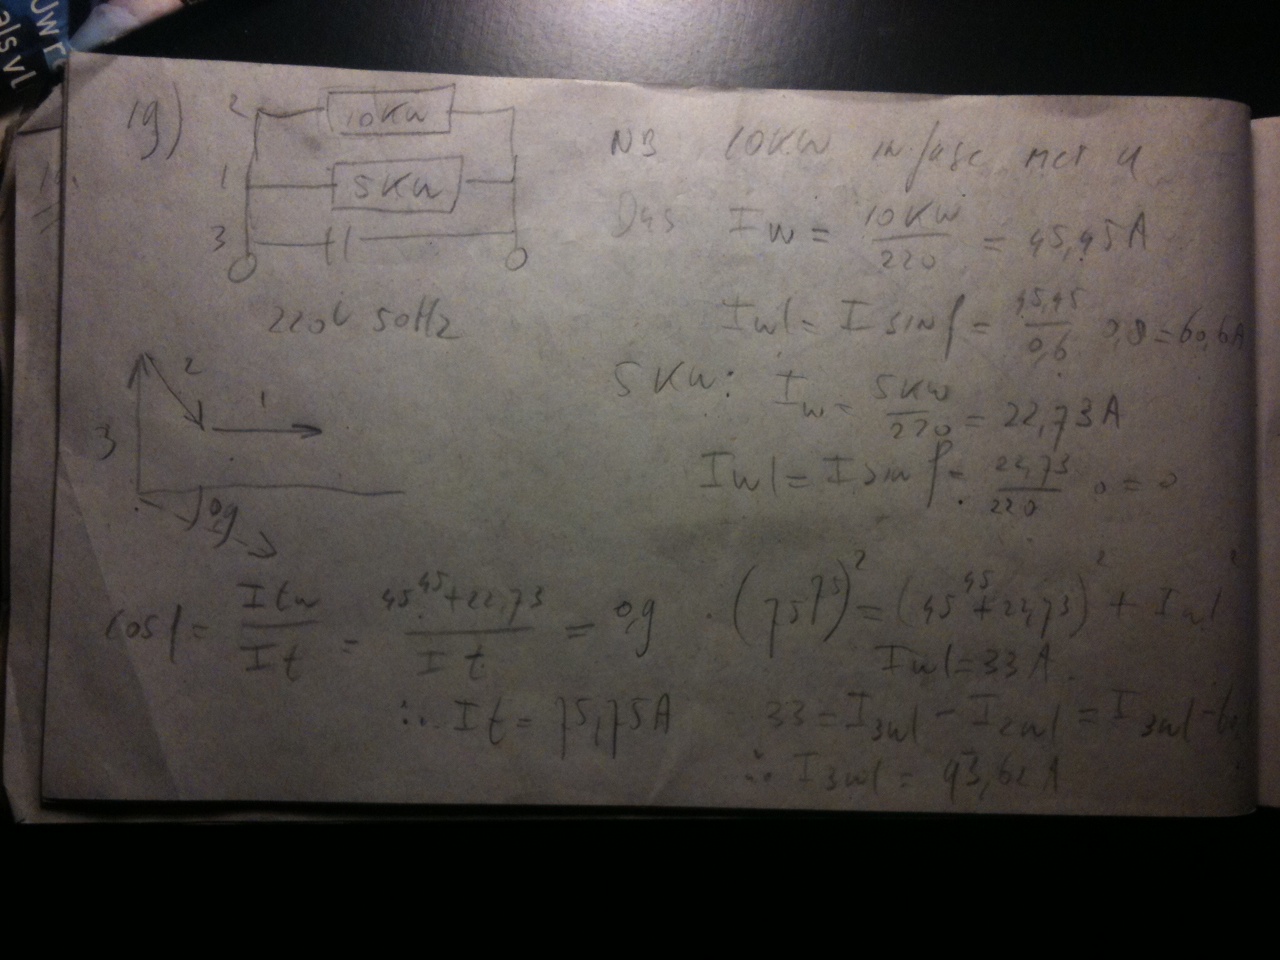 19)
2 10KW
1 5KW
3
220V 50Hz
NB 10KW in fase met U
Dus Iw = 10KW / 220 = 45,45A
Iwl = I sin φ = 45,45 / 0,6 0,8 = 60,6A
5KW: Iw = 5KW / 220 = 22,73A
Iwl = I sin φ = 22,73 / 220 . 0 = 0
2
1
3
0,9
cos φ = Itw / It = 45,45 + 22,73 / It = 0,9
∴ It = 75,75A
(75,75)² = (45,45 + 22,73)² + Iwl²
Iwl = 33A
33 = I3wl - I2wl = I3wl - 60
∴ I3wl = 93,62A